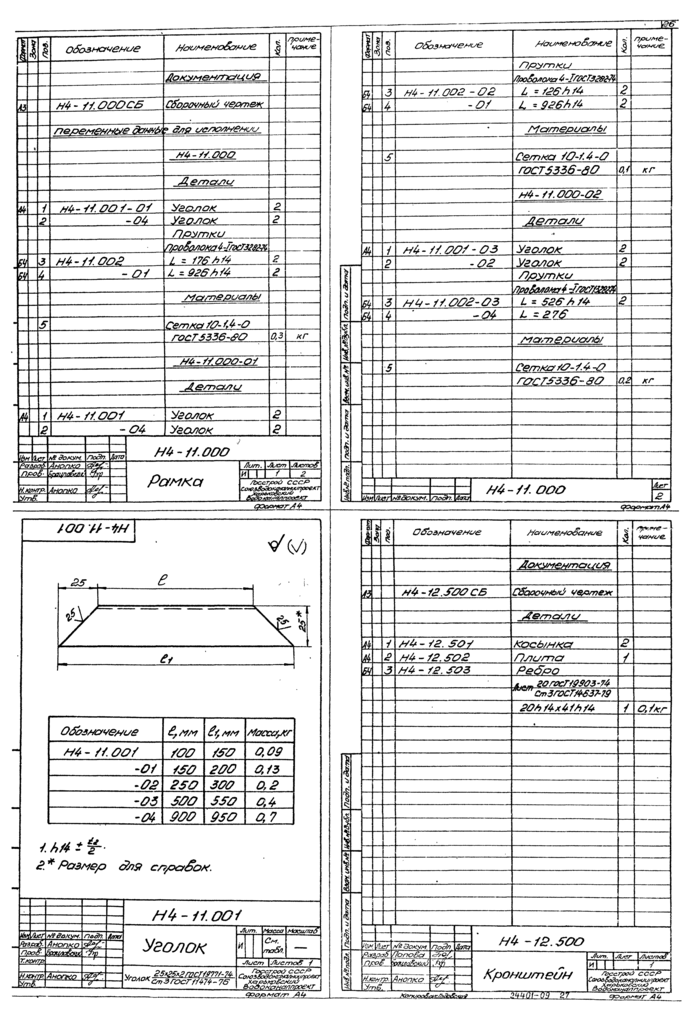 Формат
Зона
Поз.
Обозначение
Наименование
Кол.
Приме-
чание
Документация
А3 Н4-11.000СБ Сборочный чертеж
Переменные данные для исполнений
Н4-11.000
Детали
А4 1 Н4-11.001-01 Уголок 2
2 -04 Уголок 2
Прутки
Проволока 4-I ГОСТ3282-74
БЧ 3 Н4-11.002 L = 176h14 2
БЧ 4 -01 L = 926h14 2
Материалы
5 Сетка 10-1,4-0
ГОСТ5336-80 0,3 кг
Н4-11.000-01
Детали
А4 1 Н4-11.001 Уголок 2
2 -04 Уголок 2
Н4-11.000
Изм Лист № докум. Подп. Дата
Разраб. Анопко
Пров.
Н.контр. Анопко
Утв.
Рамка
Лит. Лист Листов
И 1 2
Госстрой СССР
Союзводоканалпроект
Харьковский
Водоканалпроект
Формат А4
Формат
Зона
Поз.
Обозначение
Наименование
Кол.
Приме-
чание
Прутки
Проволока 4-I ГОСТ3282-74
БЧ 3 Н4-11.002-02 L = 126h14 2
БЧ 4 -01 L = 926h14 2
Материалы
5 Сетка 10-1.4-0
ГОСТ5336-80 0,1 кг
Н4-11.000-02
Детали
А4 1 Н4-11.001-03 Уголок 2
2 -02 Уголок 2
Прутки
Проволока 4-I ГОСТ3282-74
БЧ 3 Н4-11.002-03 L = 526h14 2
БЧ 4 -04 L = 276
Материалы
5 Сетка 10-1.4-0
ГОСТ5336-80 0,2 кг
Инв.№ подл. Подп. и дата Взам.инв.№ Инв.№ дубл. Подп. и дата
Изм Лист № докум. Подп. Дата
Н4-11.000
Лист
2
Формат А4
Н4-11.001
√(√)
25 ℓ
25 25 25*
ℓ1
Обозначение ℓ, мм ℓ1, мм Масса, кг
Н4-11.001 100 150 0,09
-01 150 200 0,13
-02 250 300 0,2
-03 500 550 0,4
-04 900 950 0,7
1. h14 ± t2/2.
2.* Размер для справок.
Н4-11.001
Изм Лист № докум. Подп. Дата
Разраб. Анопко
Пров.
Т.контр.
Н.контр. Анопко
Утв.
Уголок
Лит. Масса Масштаб
И См. табл. —
Лист Листов 1
Уголок 25х25х2 ГОСТ 19771-74
Ст3 ГОСТ 11474-76
Госстрой СССР
Союзводоканалпроект
Харьковский
Водоканалпроект
Формат А4
Формат
Зона
Поз.
Обозначение
Наименование
Кол.
Приме-
чание
Документация
А3 Н4-12.500СБ Сборочный чертеж
Детали
А4 1 Н4-12.501 Косынка 2
А4 2 Н4-12.502 Плита 1
БЧ 3 Н4-12.503 Ребро
Лист 20 ГОСТ19903-74
Ст3 ГОСТ14637-79
20h14х41h14 1 0,1кг
Инв.№ подл. Подп. и дата Взам.инв.№ Инв.№ дубл. Подп. и дата
Н4-12.500
Изм Лист № докум. Подп. Дата
Разраб. Попова
Пров.
Н.контр. Анопко
Утв.
Кронштейн
Лит. Лист Листов
И 1
Госстрой СССР
Союзводоканалпроект
Харьковский
Водоканалпроект
Копировал
24401-09 27
Формат А4